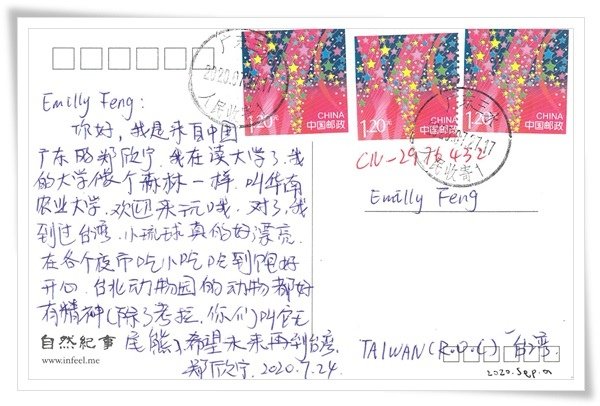 Emilly Feng:
你好,我是来自中国
广东的郑欣宁.我在读大学了.我
的大学像个森林一样,叫华南
农业大学.欢迎来玩哦.对了,我
到过台湾.小琉球真的好漂亮.
在各个夜市吃小吃吃到饱好
开心.台北动物园的动物都好
有精神(除了考拉,你们叫它无
尾熊).希望未来再到台湾.
郑欣宁.2020.7.24.
自然紀事
www.infeel.me
1.20元
CHINA
中国邮政
1.20元
CHINA
中国邮政
1.20元
CHINA
中国邮政
广东
2020.07
人民收寄1
2020.07.27.17
收寄1
CN-2976432
Emilly Feng
TAIWAN(R.O.C) 台湾
2020.Sep.01